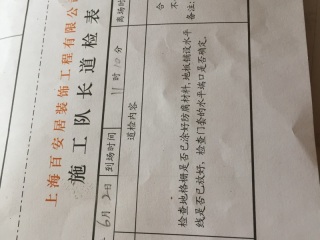 上海百安居装饰工程有限公
施工队长道检表
6月2日 到场时间 11时10分 离场时
道检内容 合
不
备注:
检查地格栅是否已涂好防腐材料,地板铺设水平
线是否已放好,检查门套的水平端口是否确定。